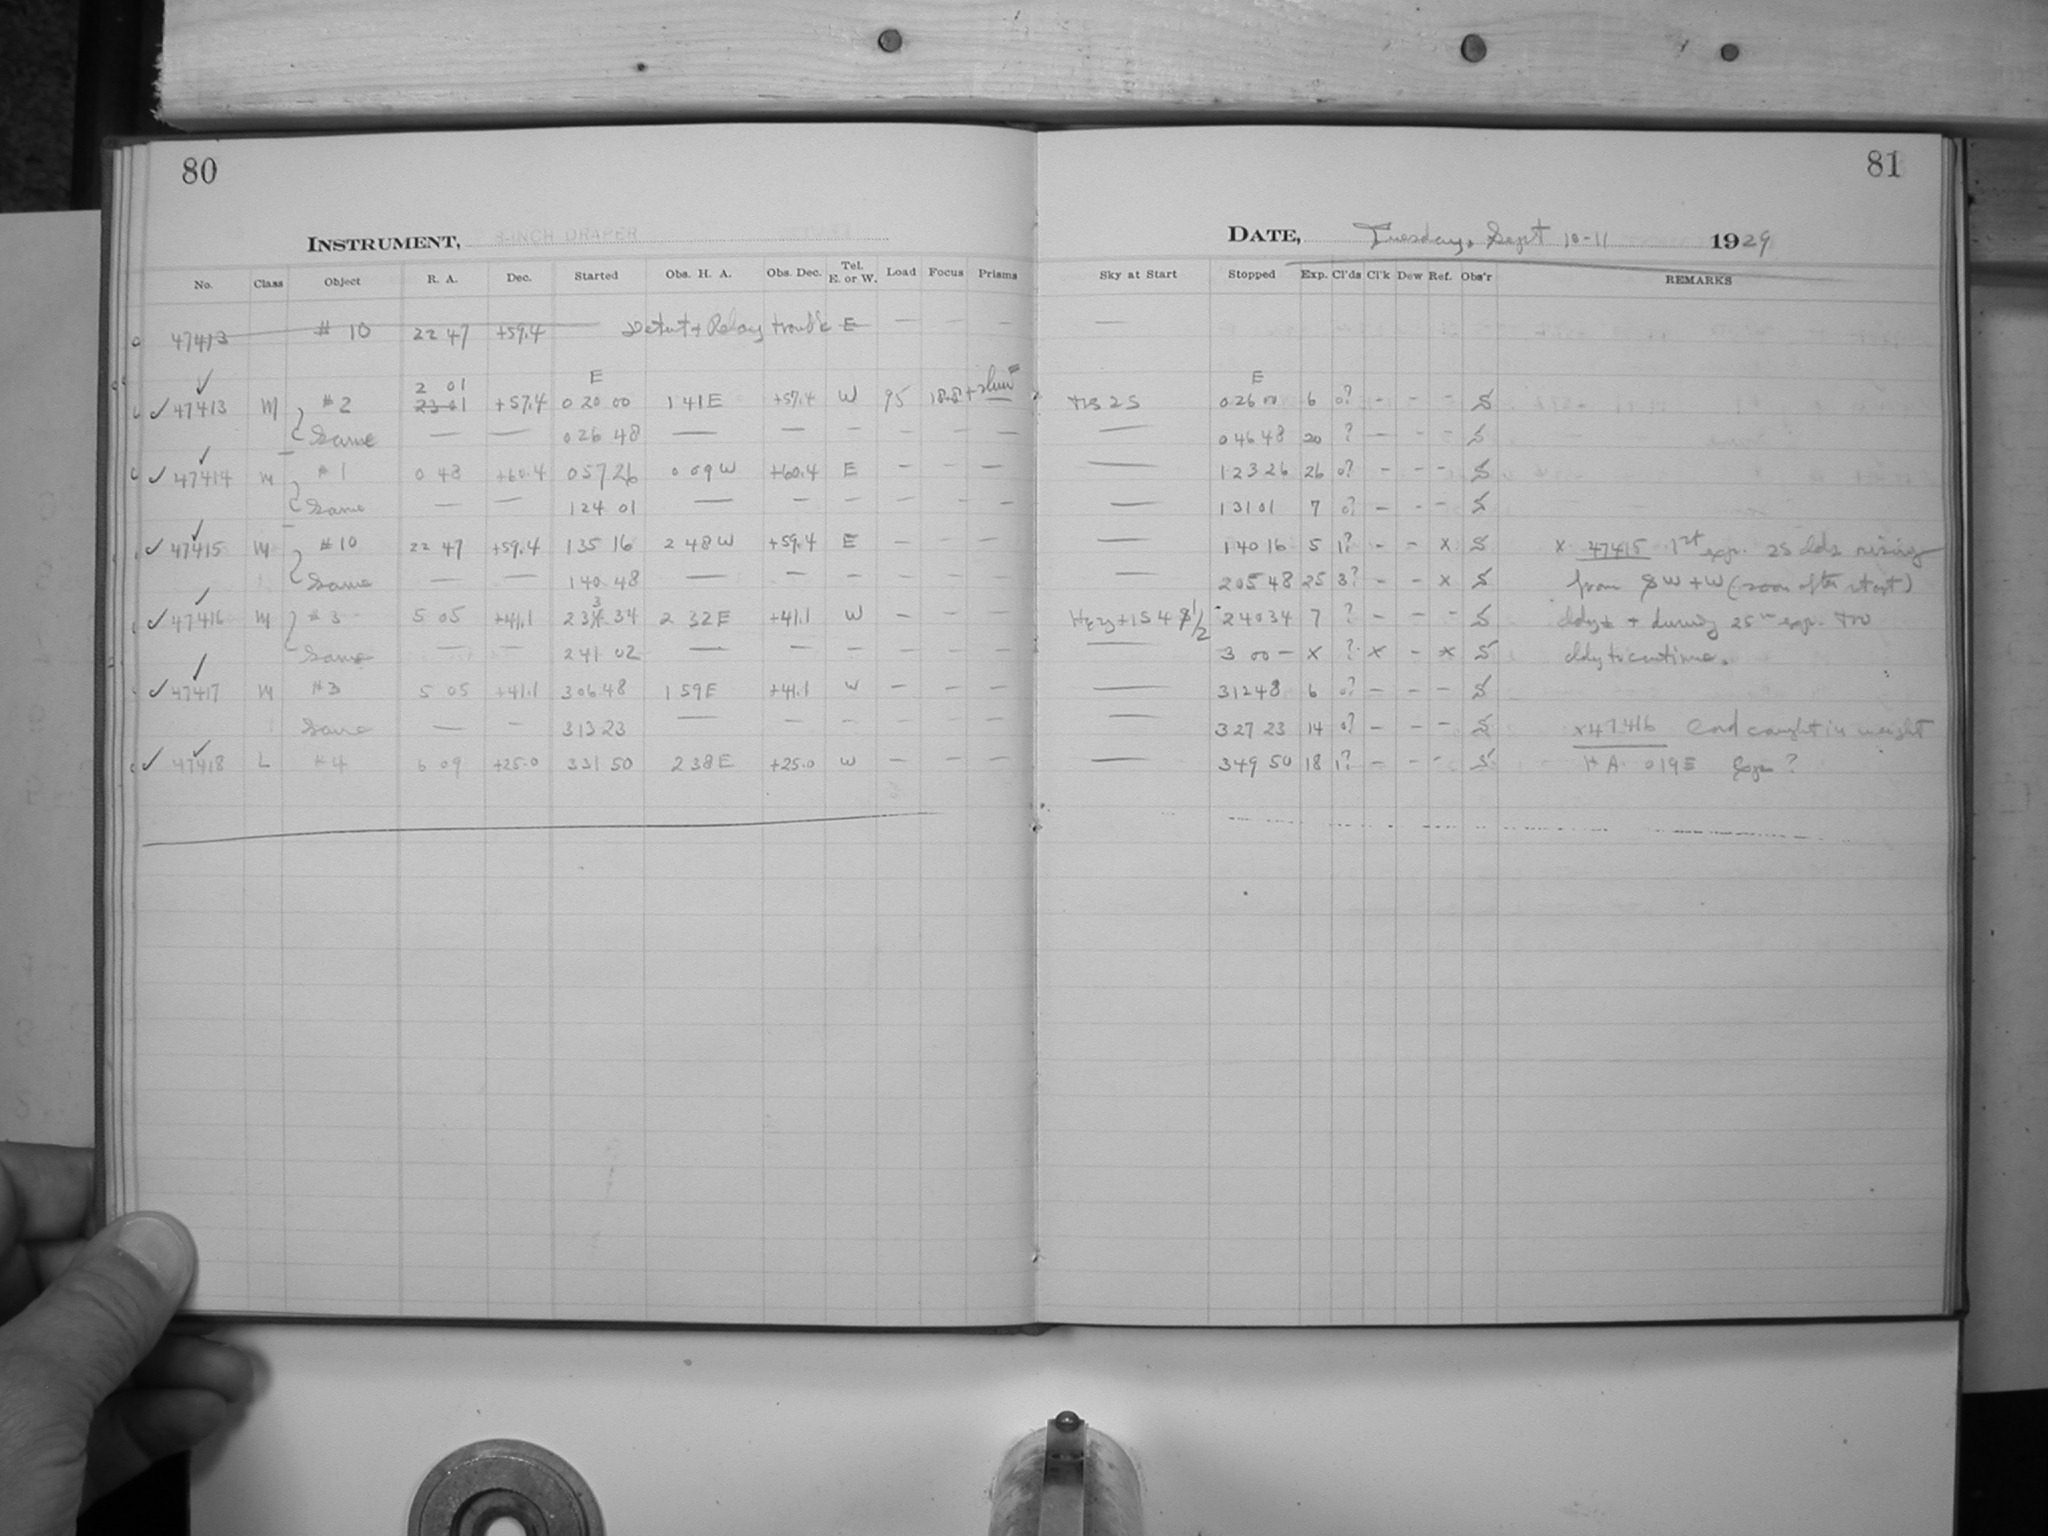 80
INSTRUMENT, 8-INCH DRAPER
No. Class Object R. A. Dec. Started Obs. H. A. Obs. Dec. Tel. E. or W. Load Focus Prisms
47413 # 10 22 47 +59.4 Relay trouble E — — —
2 01 E
47413 M #2 23 01 +57.4 0 20 00 1 41 E +57.4 W 95
Same — — 0 26 48 — — — — — —
47414 M #1 0 48 +60.4 0 57 26 0 09 W +60.4 E — — —
Same — — 1 24 01 — — — — — —
47415 M #10 22 47 +59.4 1 35 16 2 48 W +59.4 E — — —
Same — — 1 40 48 — — — — — —
47416 M #3 5 05 +41.1 2 33 34 2 32 E +41.1 W — — —
Same — — 2 41 02 — — — — — —
47417 M #3 5 05 +41.1 3 06 48 1 59 E +41.1 W — — —
Same — — 3 13 23 — — — — — —
47418 L #4 6 09 +25.0 3 31 50 2 38 E +25.0 W — — —
81
DATE, Tuesday, Sept 10-11 1929
Sky at Start Stopped Exp. Cl'ds Cl'k Dew Ref. Obs'r REMARKS
—
E
0 26 00 6 0? - - - S
— 0 46 48 20 ? - - - S
— 1 23 26 26 0? - - - S
— 1 31 01 7 0? - - - S
— 1 40 16 5 1? - - x S x 47415 1st exp. 25 clds rising
— 2 05 48 25 3? - - x S from SW + W (soon after start)
2 40 34 7 ? - - - S + during 25m exp. too
— 3 00 — x ? x - x S cldy to continue.
— 3 12 48 6 0? - - - S
— 3 27 23 14 0? - - - S x 47416 Cord caught in weight
— 3 49 50 18 1? - - - S H A 0 19 E Exp ?